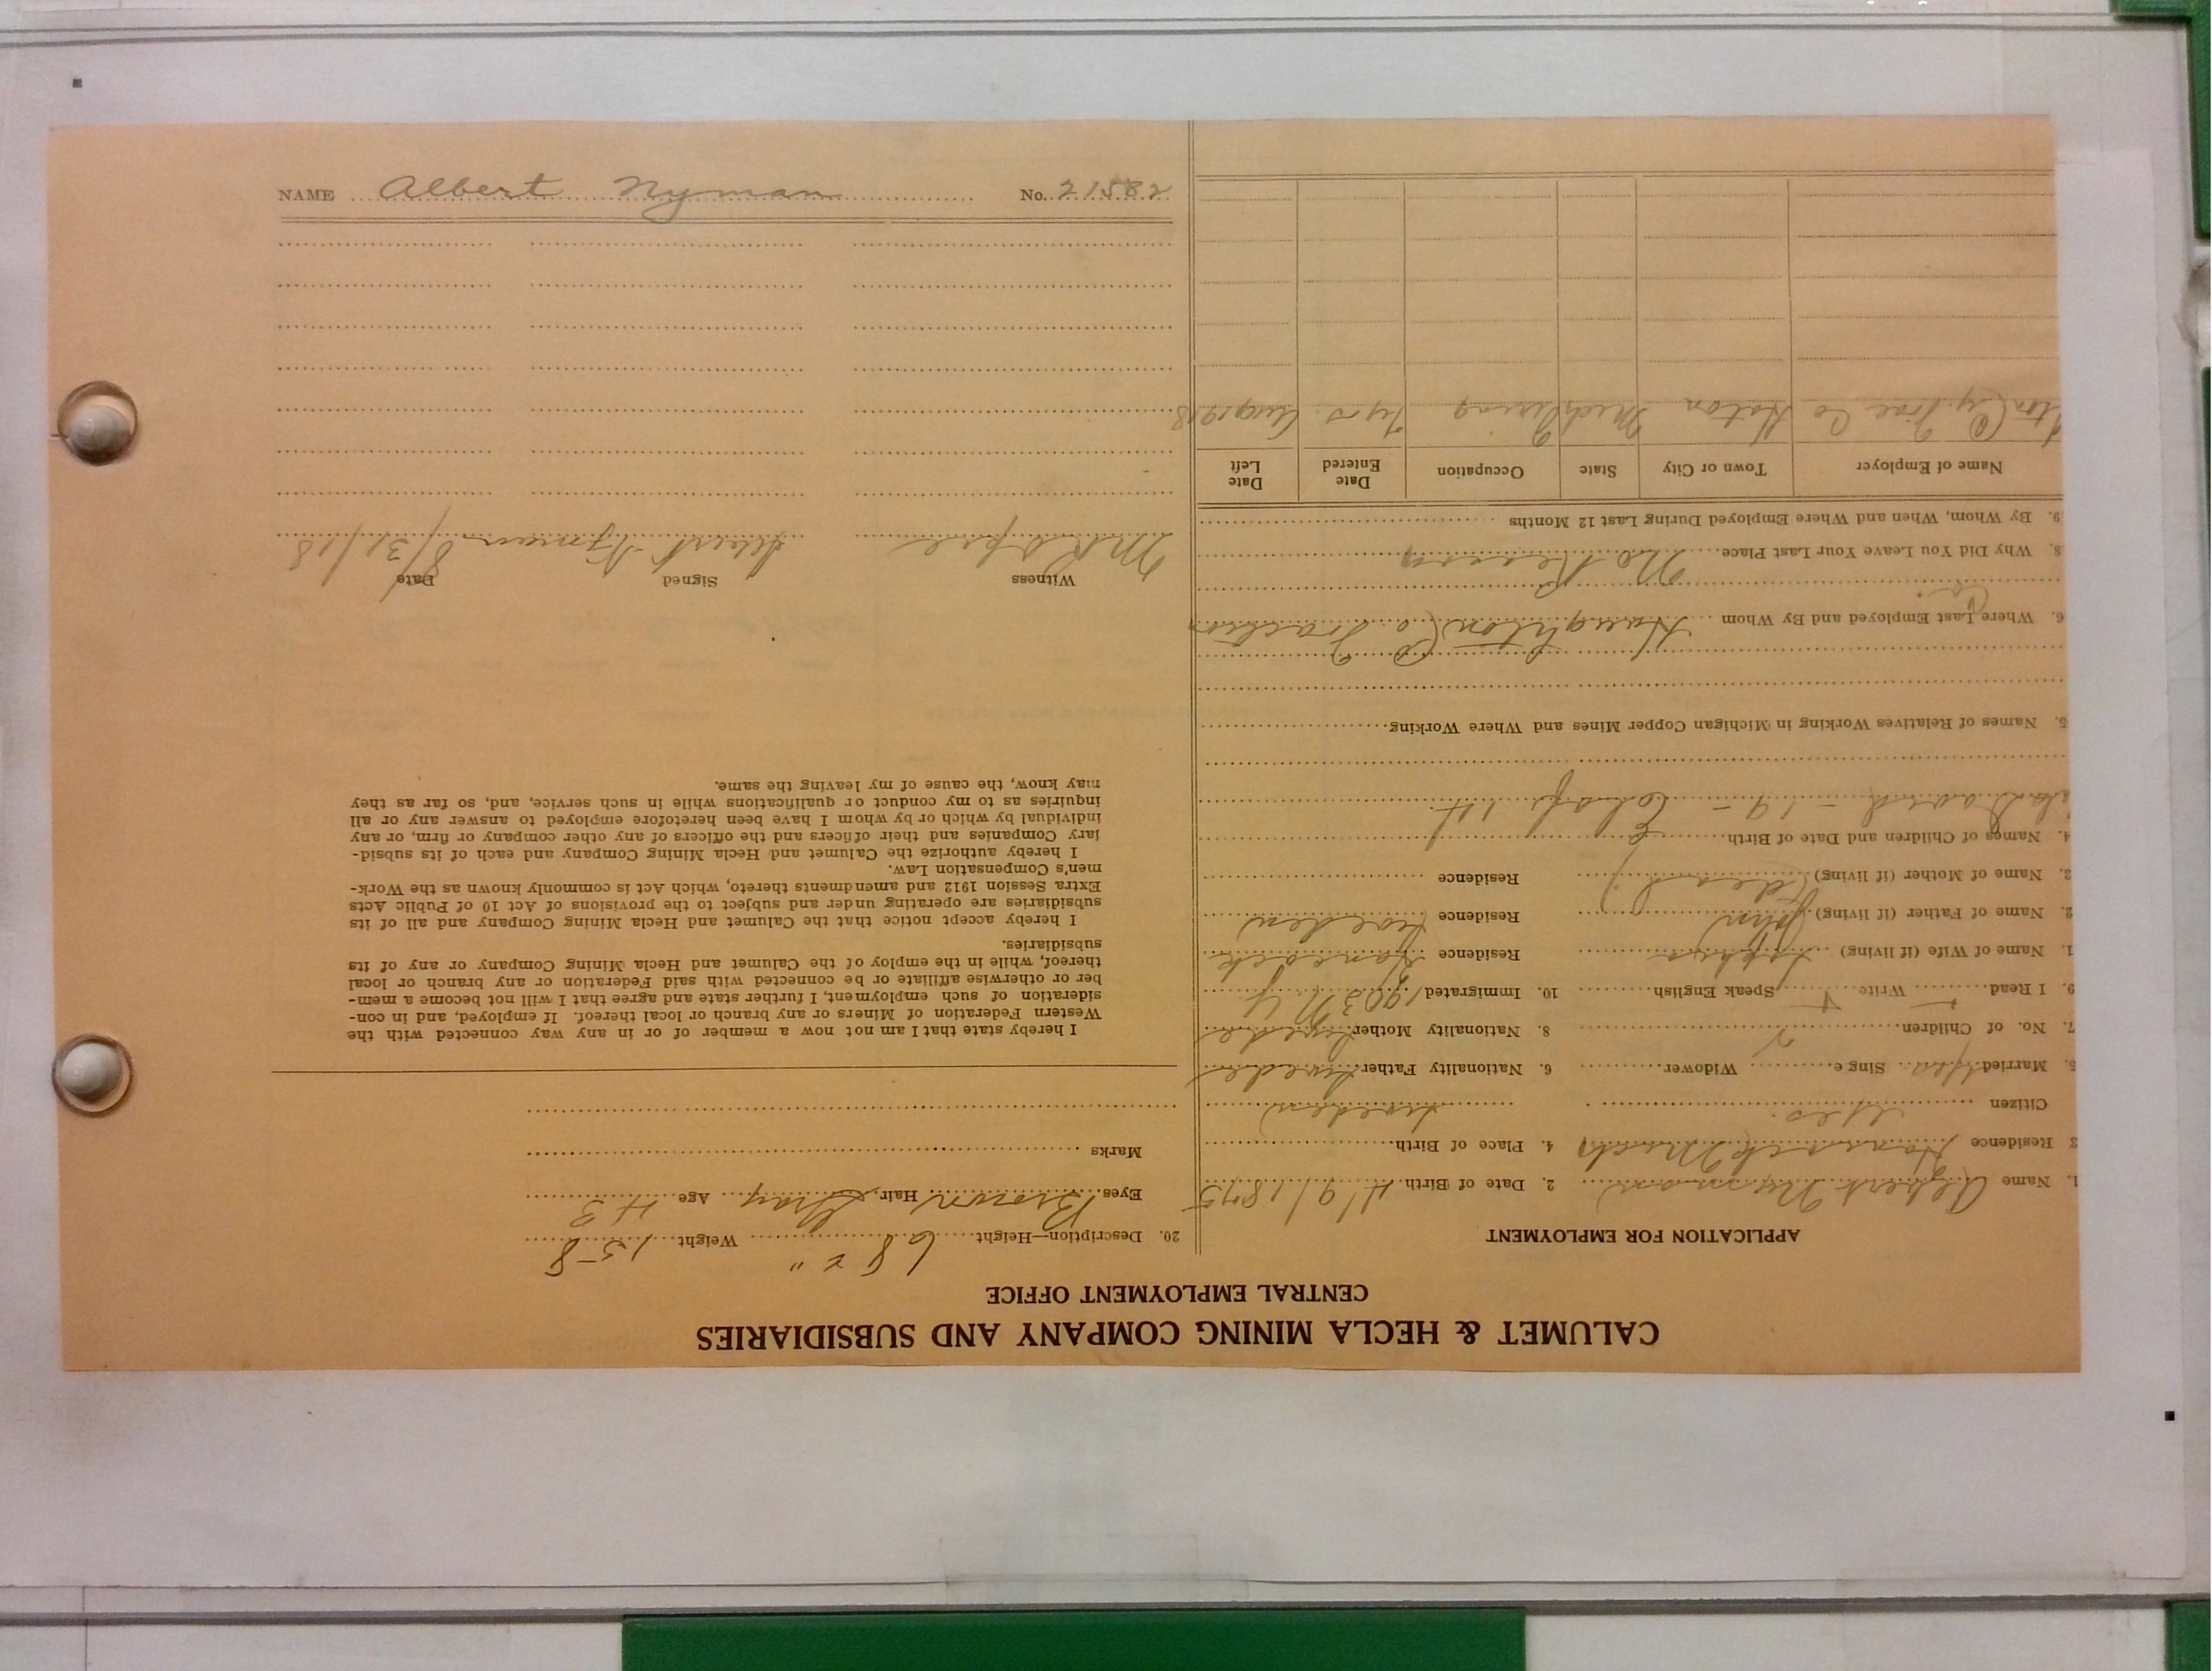 CALUMET & HECLA MINING COMPANY AND SUBSIDIARIES
CENTRAL EMPLOYMENT OFFICE
APPLICATION FOR EMPLOYMENT
1. Name Albert Nyman 2. Date of Birth 4/9/1875
3 Residence Hancock Mich 4. Place of Birth
Citizen Yes. Sweden
5. Married Yes Single Widower 6. Nationality Father Swede
7. No. of Children 2 8. Nationality Mother Swede
9. I Read Write Speak English 10. Immigrated 1903 N Y
1. Name of Wife (if living) Residence Hancock
2. Name of Father (if living) John Residence Sweden
3. Name of Mother (if living) (dead) Residence
4. Names of Children and Date of Birth
David - 19 - 14
5. Names of Relatives Working in Michigan Copper Mines and Where Working
6. Where Last Employed and By Whom Houghton Co. Traction
Co.
8. Why Did You Leave Your Last Place No Reason
9. By Whom, When and Where Employed During Last 12 Months
Name of Employer Town or City State Occupation Date Entered Date Left
Hton Cy. Trac Co Hoton Mich 7 yrs Aug 1918
20. Description—Height 68 2 " Weight 158
Eyes Brown Hair Gray Age 43
Marks
I hereby state that I am not now a member of or in any way connected with the
Western Federation of Miners or any branch or local thereof. If employed, and in con-
sideration of such employment, I further state and agree that I will not become a mem-
ber or otherwise affiliate or be connected with said Federation or any branch or local
thereof, while in the employ of the Calumet and Hecla Mining Company or any of its
subsidiaries.
I hereby accept notice that the Calumet and Hecla Mining Company and all of its
subsidiaries are operating under and subject to the provisions of Act 10 of Public Acts
Extra Session 1912 and amendments thereto, which Act is commonly known as the Work-
men's Compensation Law.
I hereby authorize the Calumet and Hecla Mining Company and each of its subsid-
iary Companies and their officers and the officers of any other company or firm, or any
individual by which or by whom I have been heretofore employed to answer any or all
inquiries as to my conduct or qualifications while in such service, and, so far as they
may know, the cause of my leaving the same.
Witness Signed Date
Albert Nyman 8/31/18
NAME Albert Nyman No. 21582